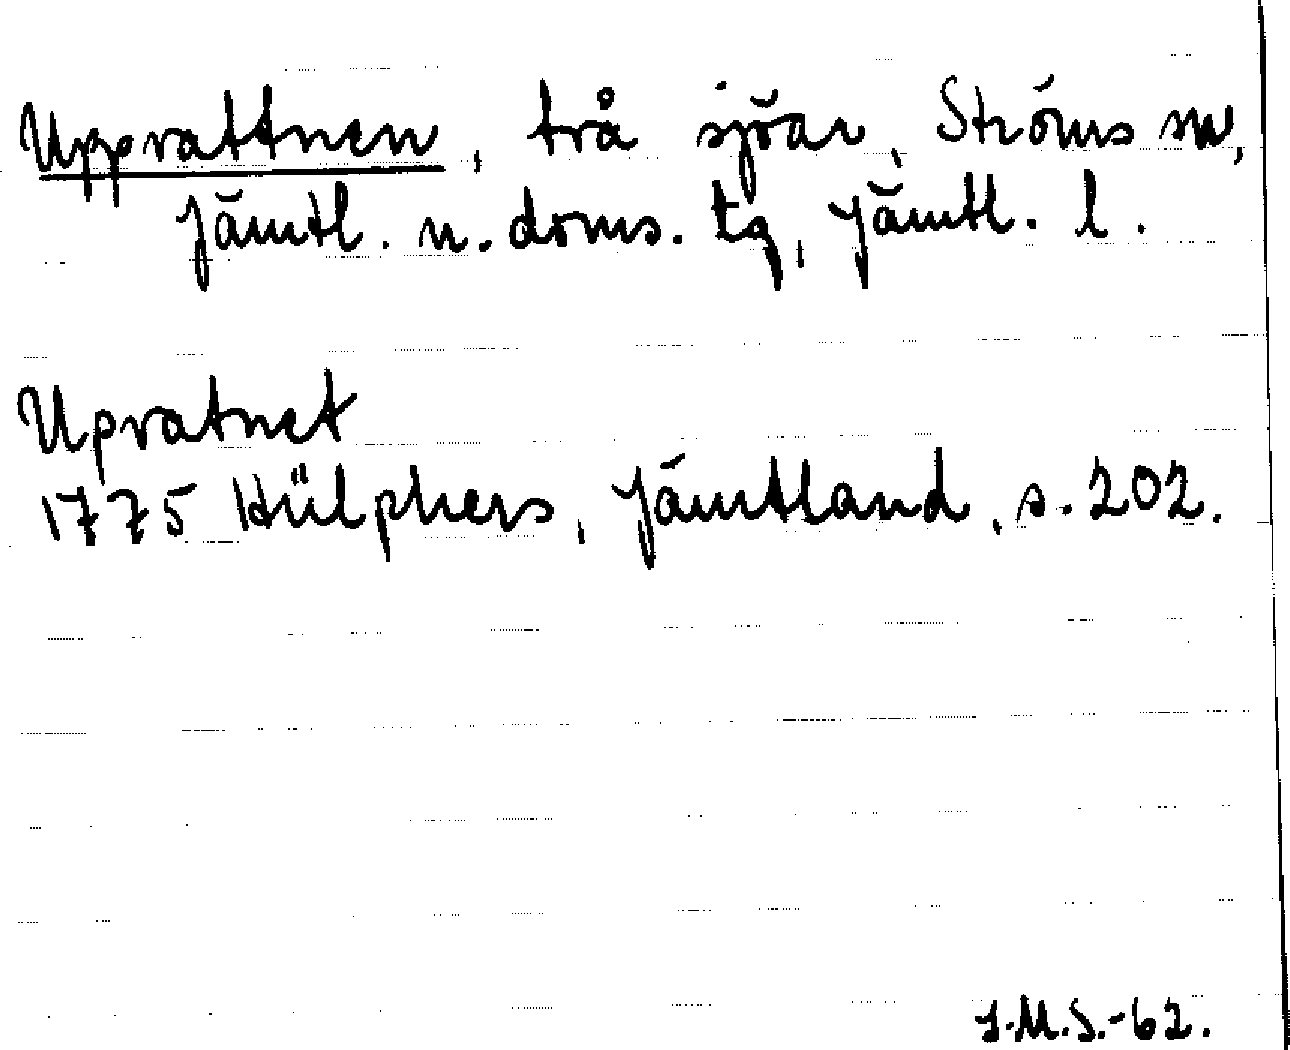 Uppvattnen, två sjöar, Ströms sn,
Jämtl. n. doms. tg, Jämtl. l.
Upvatnet
1775 Hülphers, Jämtland, s. 202.
J.M.S.-62.